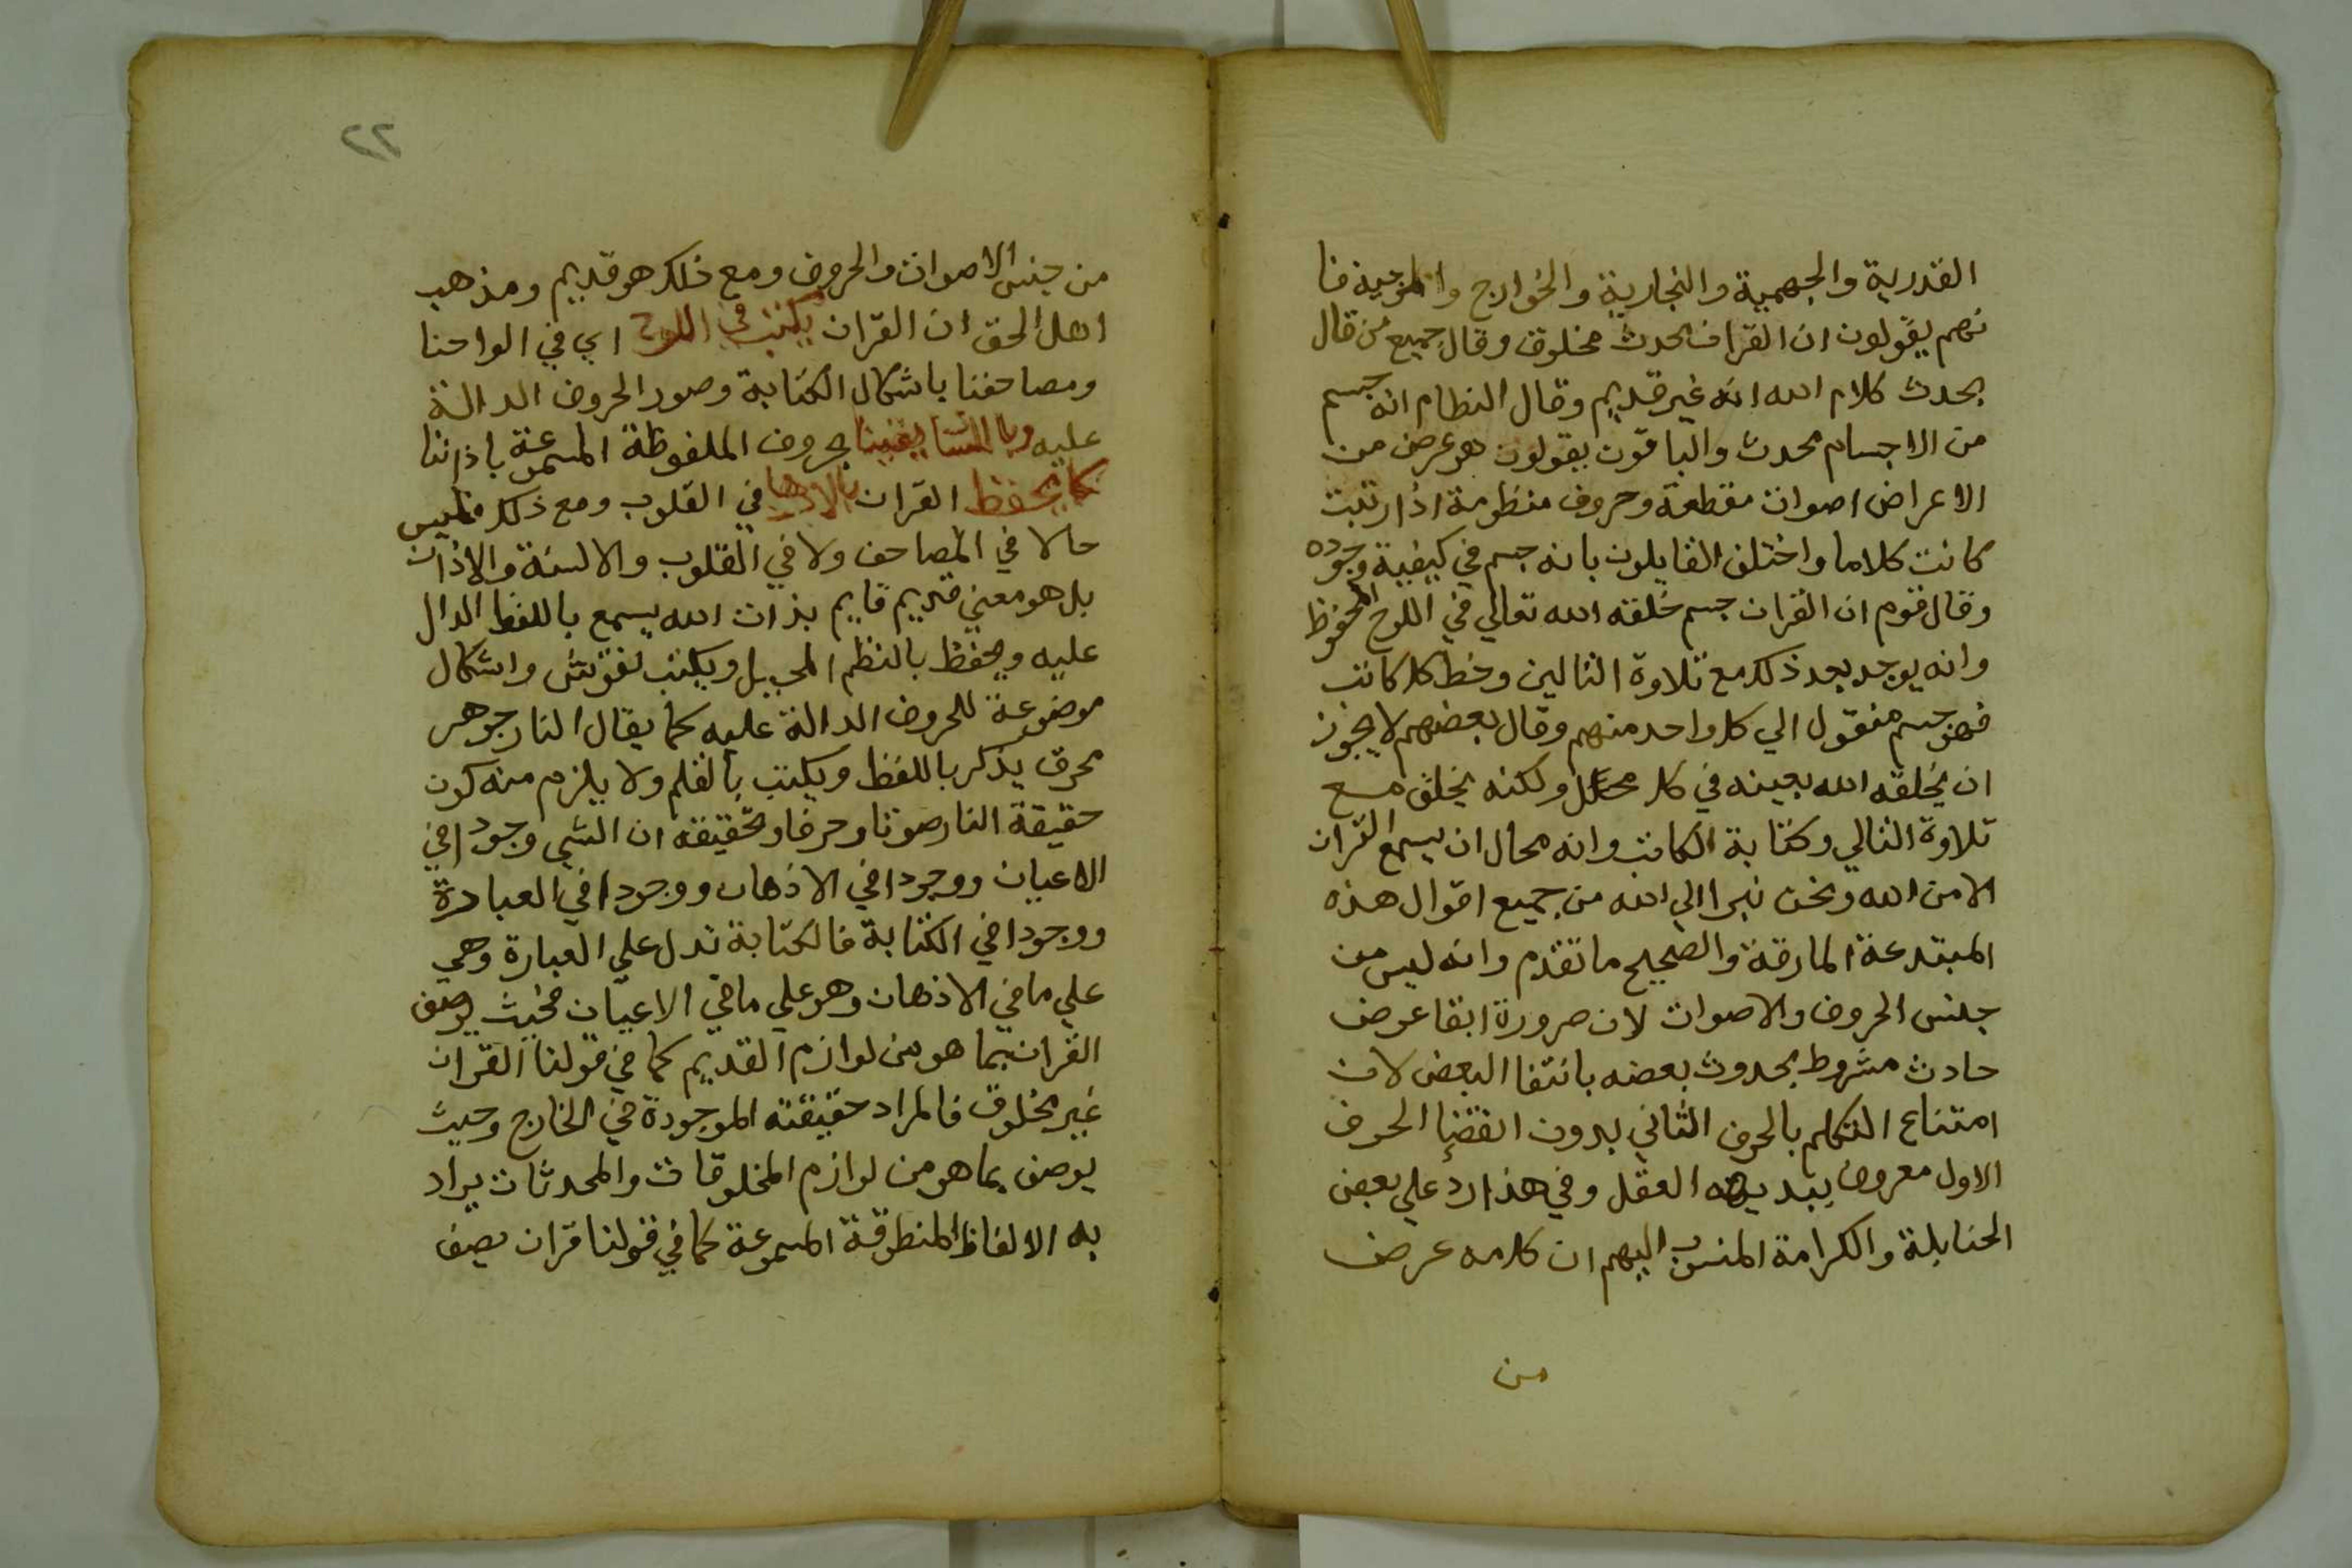 القدرية والجهمية والنجارية والخوارج والمرجية فا
نهم يقولون ان القران محدث مخلوق وقال جميع من قال
بحدث كلام الله انه غير قديم وقال النظام انه جسم
من الاجسام محدث والباقون يقولون هو عرض من
الاعراض اصوات مقطعة وحروف منظومة اذا رتبت
كانت كلاما واختلف القايلون بانه جسم في كيفية وجوده
وقال قوم ان القران جسم خلقه الله تعالي في اللوح المحفوظ
وانه يوجد بعد ذلك مع تلاوة التالين وخط كل كاتب
فهو جسم منقول الي كل واحد منهم وقال بعضهم لا يجوز
ان يخلقه الله بعينه في كل محل ولكنه يخلق مع
تلاوة التالي وكتابة الكاتب وانه محال ان يسمع القران
الا من الله ونحن نبرا الي الله من جميع اقوال هذه
المبتدعة المارقة والصحيح ما تقدم وانه ليس من
جنس الحروف والاصوات لان ضرورة ابقا عوض
حادث مشروط بحدوث بعضه بانتفا البعض لان
امتناع التكلم بالحرف الثاني بدون انقضا الحرف
الاول معروف ببديهه العقل وفي هذا رد علي بعض
الحنابلة والكرامة المنسوب اليهم ان كلامه عرض
من
٢٢
من جنس الاصوات والحروف ومع ذلك هو قديم ومذهب
اهل الحق ان القران يكتب في اللوح اي في الواحنا
ومصاحفنا باشكال الكتابة وصور الحروف الدالة
عليه وبالسنتنا بحروف الملفوظة المسموعة باذاننا
كما يحفظ القران بالاذهان في القلوب ومع ذلك فليس
حالا في المصاحف ولا في القلوب والالسنة والاذان
بل هو معني قديم قايم بذات الله يسمع باللفظ الدال
عليه ويحفظ بالنظم المخيل ويكتب نقوش واشكال
موضوعة للحروف الدالة عليه كما يقال النار جوهر
محرق يذكر باللفظ ويكتب بالقلم ولا يلزم منه كون
حقيقة النار صوتا وحرفا وتحقيقه ان الشي وجودا في
الاعيان ووجودا في الاذهان ووجودا في العبادرة
ووجودا في الكتابة فالكتابة تدل علي العبارة وهي
علي ما في الاذهان وهو علي ما في الاعيان فحيث يوصف
القران بما هو من لوازم القديم كما في قولنا القران
غير مخلوق فالمراد حقيقته الموجودة في الخارج وحيث
يوصف بما هو من لوازم المخلوقات والمحدثات يراد
به الالفاظ المنطوقة المسموعة كما في قولنا قران نصف